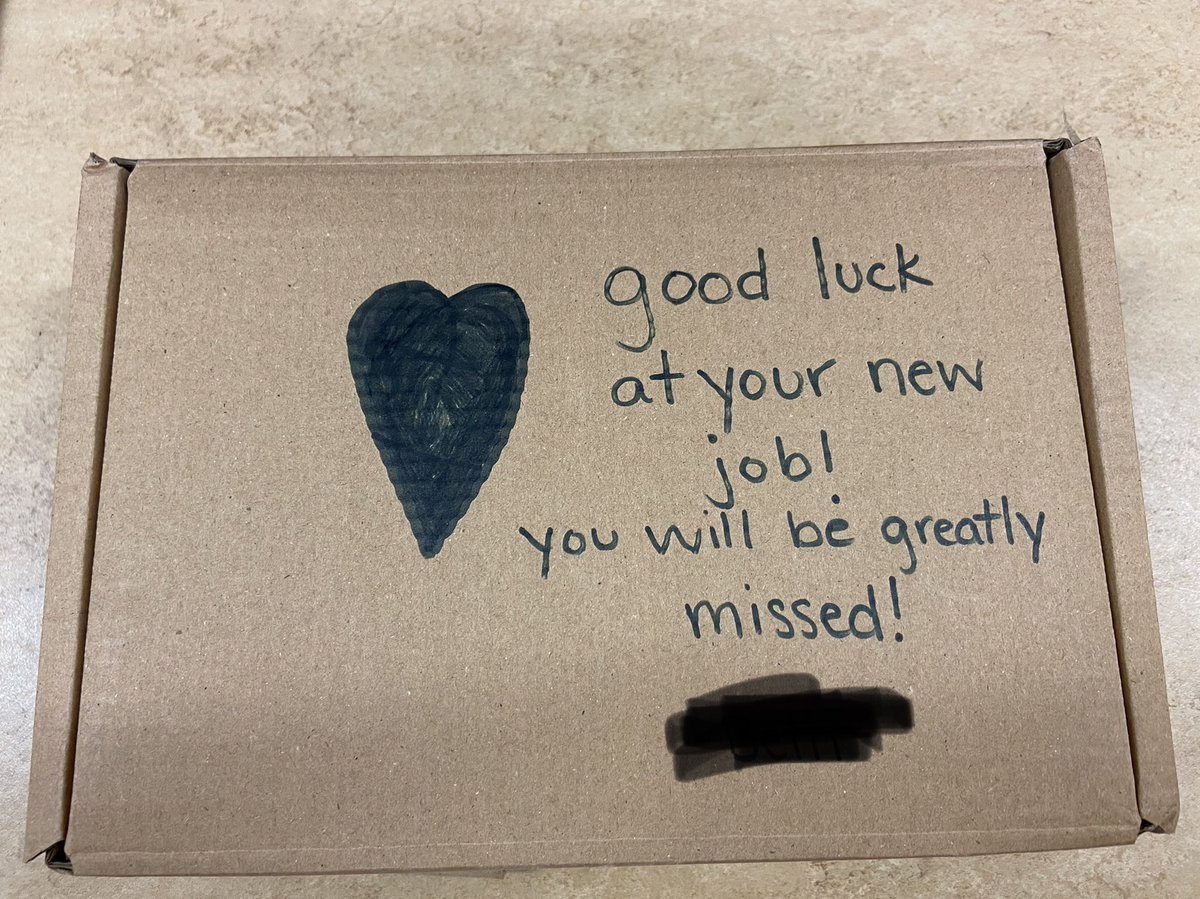 good luck
at your new
job!
you will be greatly
missed!